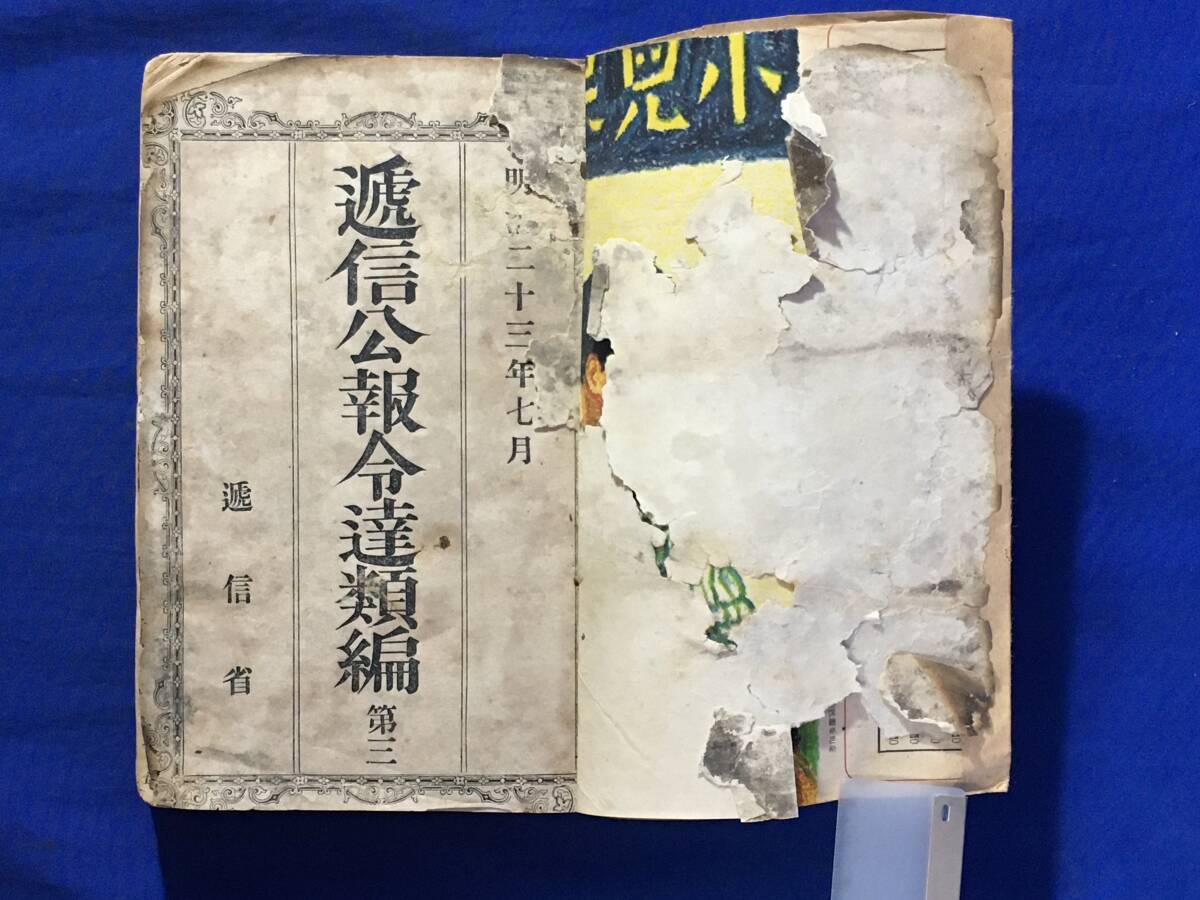 明治二十三年七月
遞信公報令達類編 第三
遞信省
小児